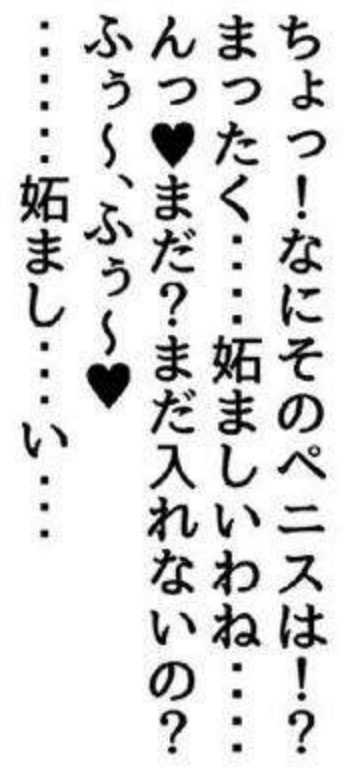 ちょっ！なにそのペニスは！？
まったく‥‥妬ましいわね‥‥
んっ♥まだ？まだ入れないの？
ふぅ〜、ふぅ〜♥
‥‥‥妬まし‥‥い‥‥